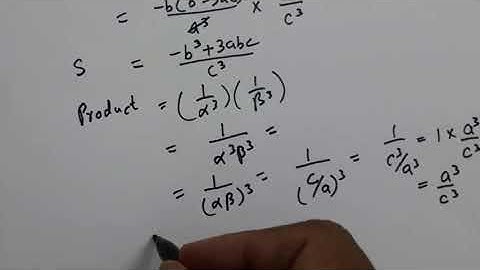 = -b(b²-3ac)/a³ × /c³
S = -b³+3abc/c³
Product = (1/α³)(1/β³)
= 1/α³β³ =
= 1/(αβ)³ = 1/(c/a)³ = 1/c³/a³ = 1 × a³/c³
= a³/c³